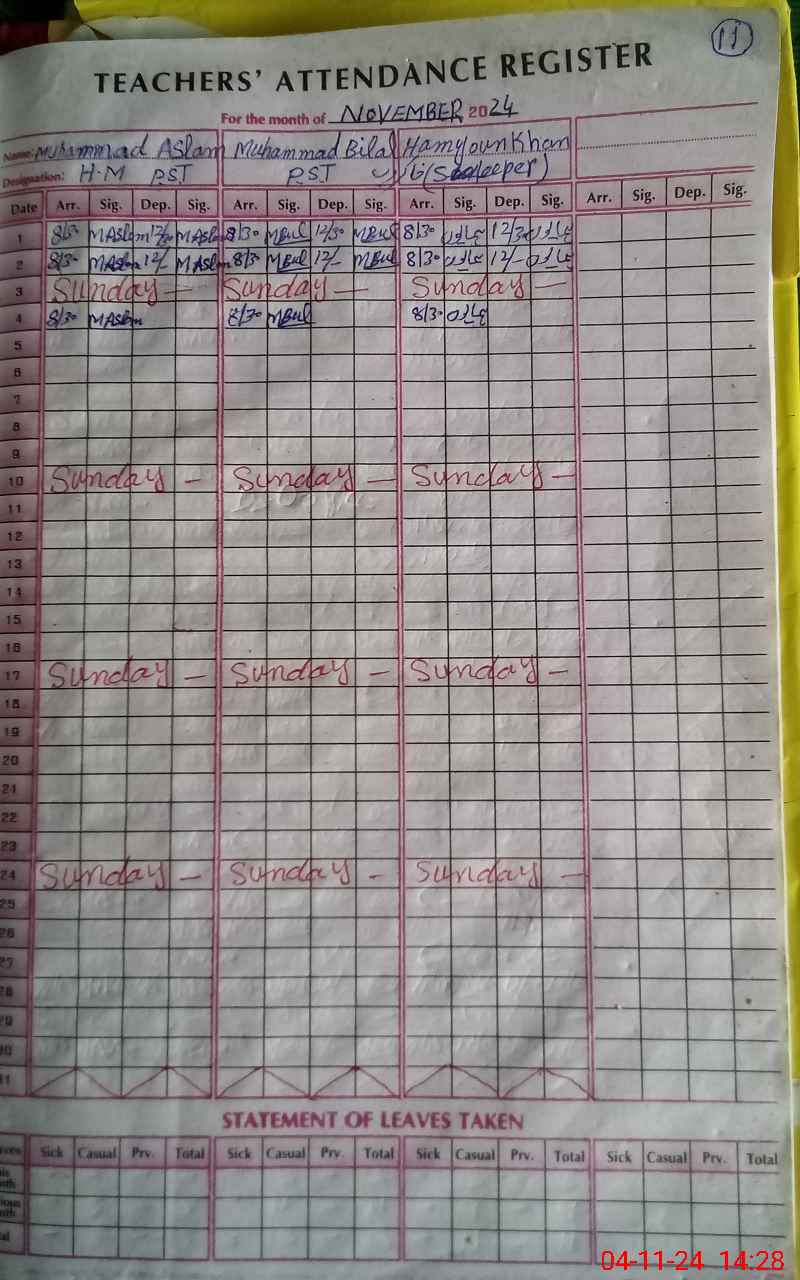 11
TEACHERS' ATTENDANCE REGISTER
For the month of NOVEMBER 2024
Name: Muhammad Aslam Muhammad Bilal Hamyoun Khan
Designation: H.M PST PST
Date Arr. Sig. Dep. Sig. Arr. Sig. Dep. Sig. Arr. Sig. Dep. Sig. Arr. Sig. Dep. Sig.
1 8/30 MAslam 12/30 MAslam 8/30 12/30 8/30 12/30
2 8/30 MAslam 12/- MAslam 8/30 12/- 8/30 12/-
3 Sunday — Sunday — Sunday —
4 8/30 MAslam 8/30 8/30
5
6
7
8
9
10 Sunday - Sunday — Sunday —
11
12
13
14
15
16
17 Sunday - Sunday - Sunday —
18
19
20
21
22
23
24 Sunday - Sunday - Sunday —
25
26
27
28
29
30
31
STATEMENT OF LEAVES TAKEN
Sick Casual Prv. Total Sick Casual Prv. Total Sick Casual Prv. Total Sick Casual Prv. Total
04-11-24 14:28